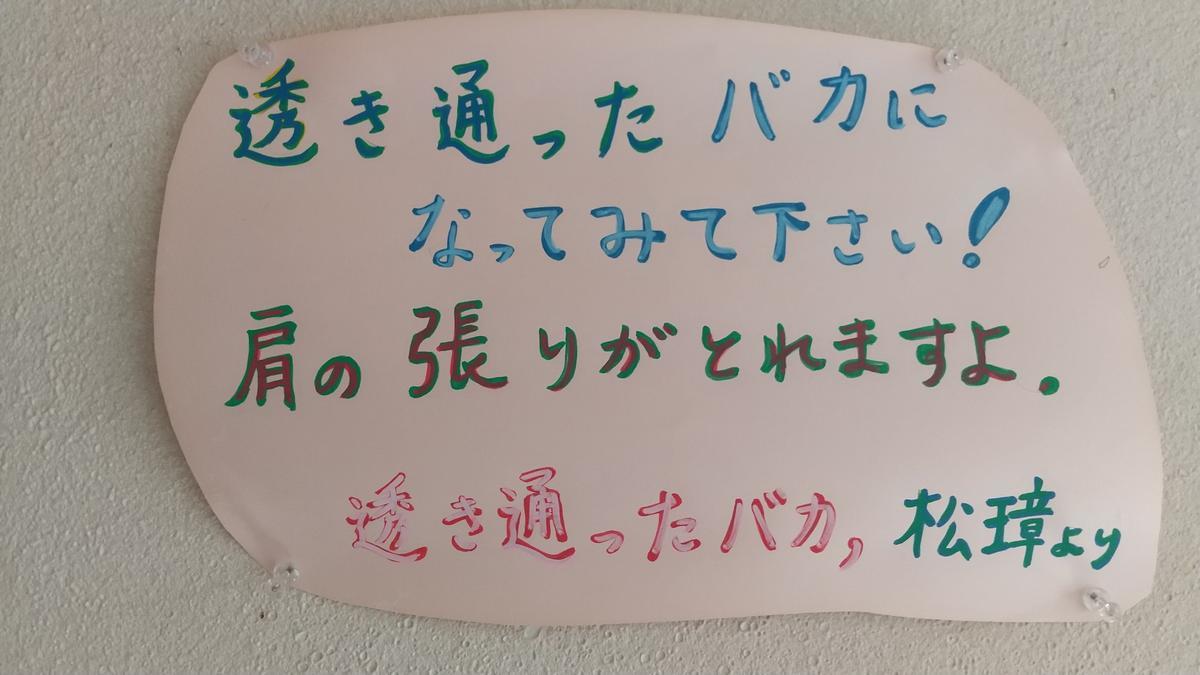 透き通ったバカに
なってみて下さい!
肩の張りがとれますよ。
透き通ったバカ,松璋より